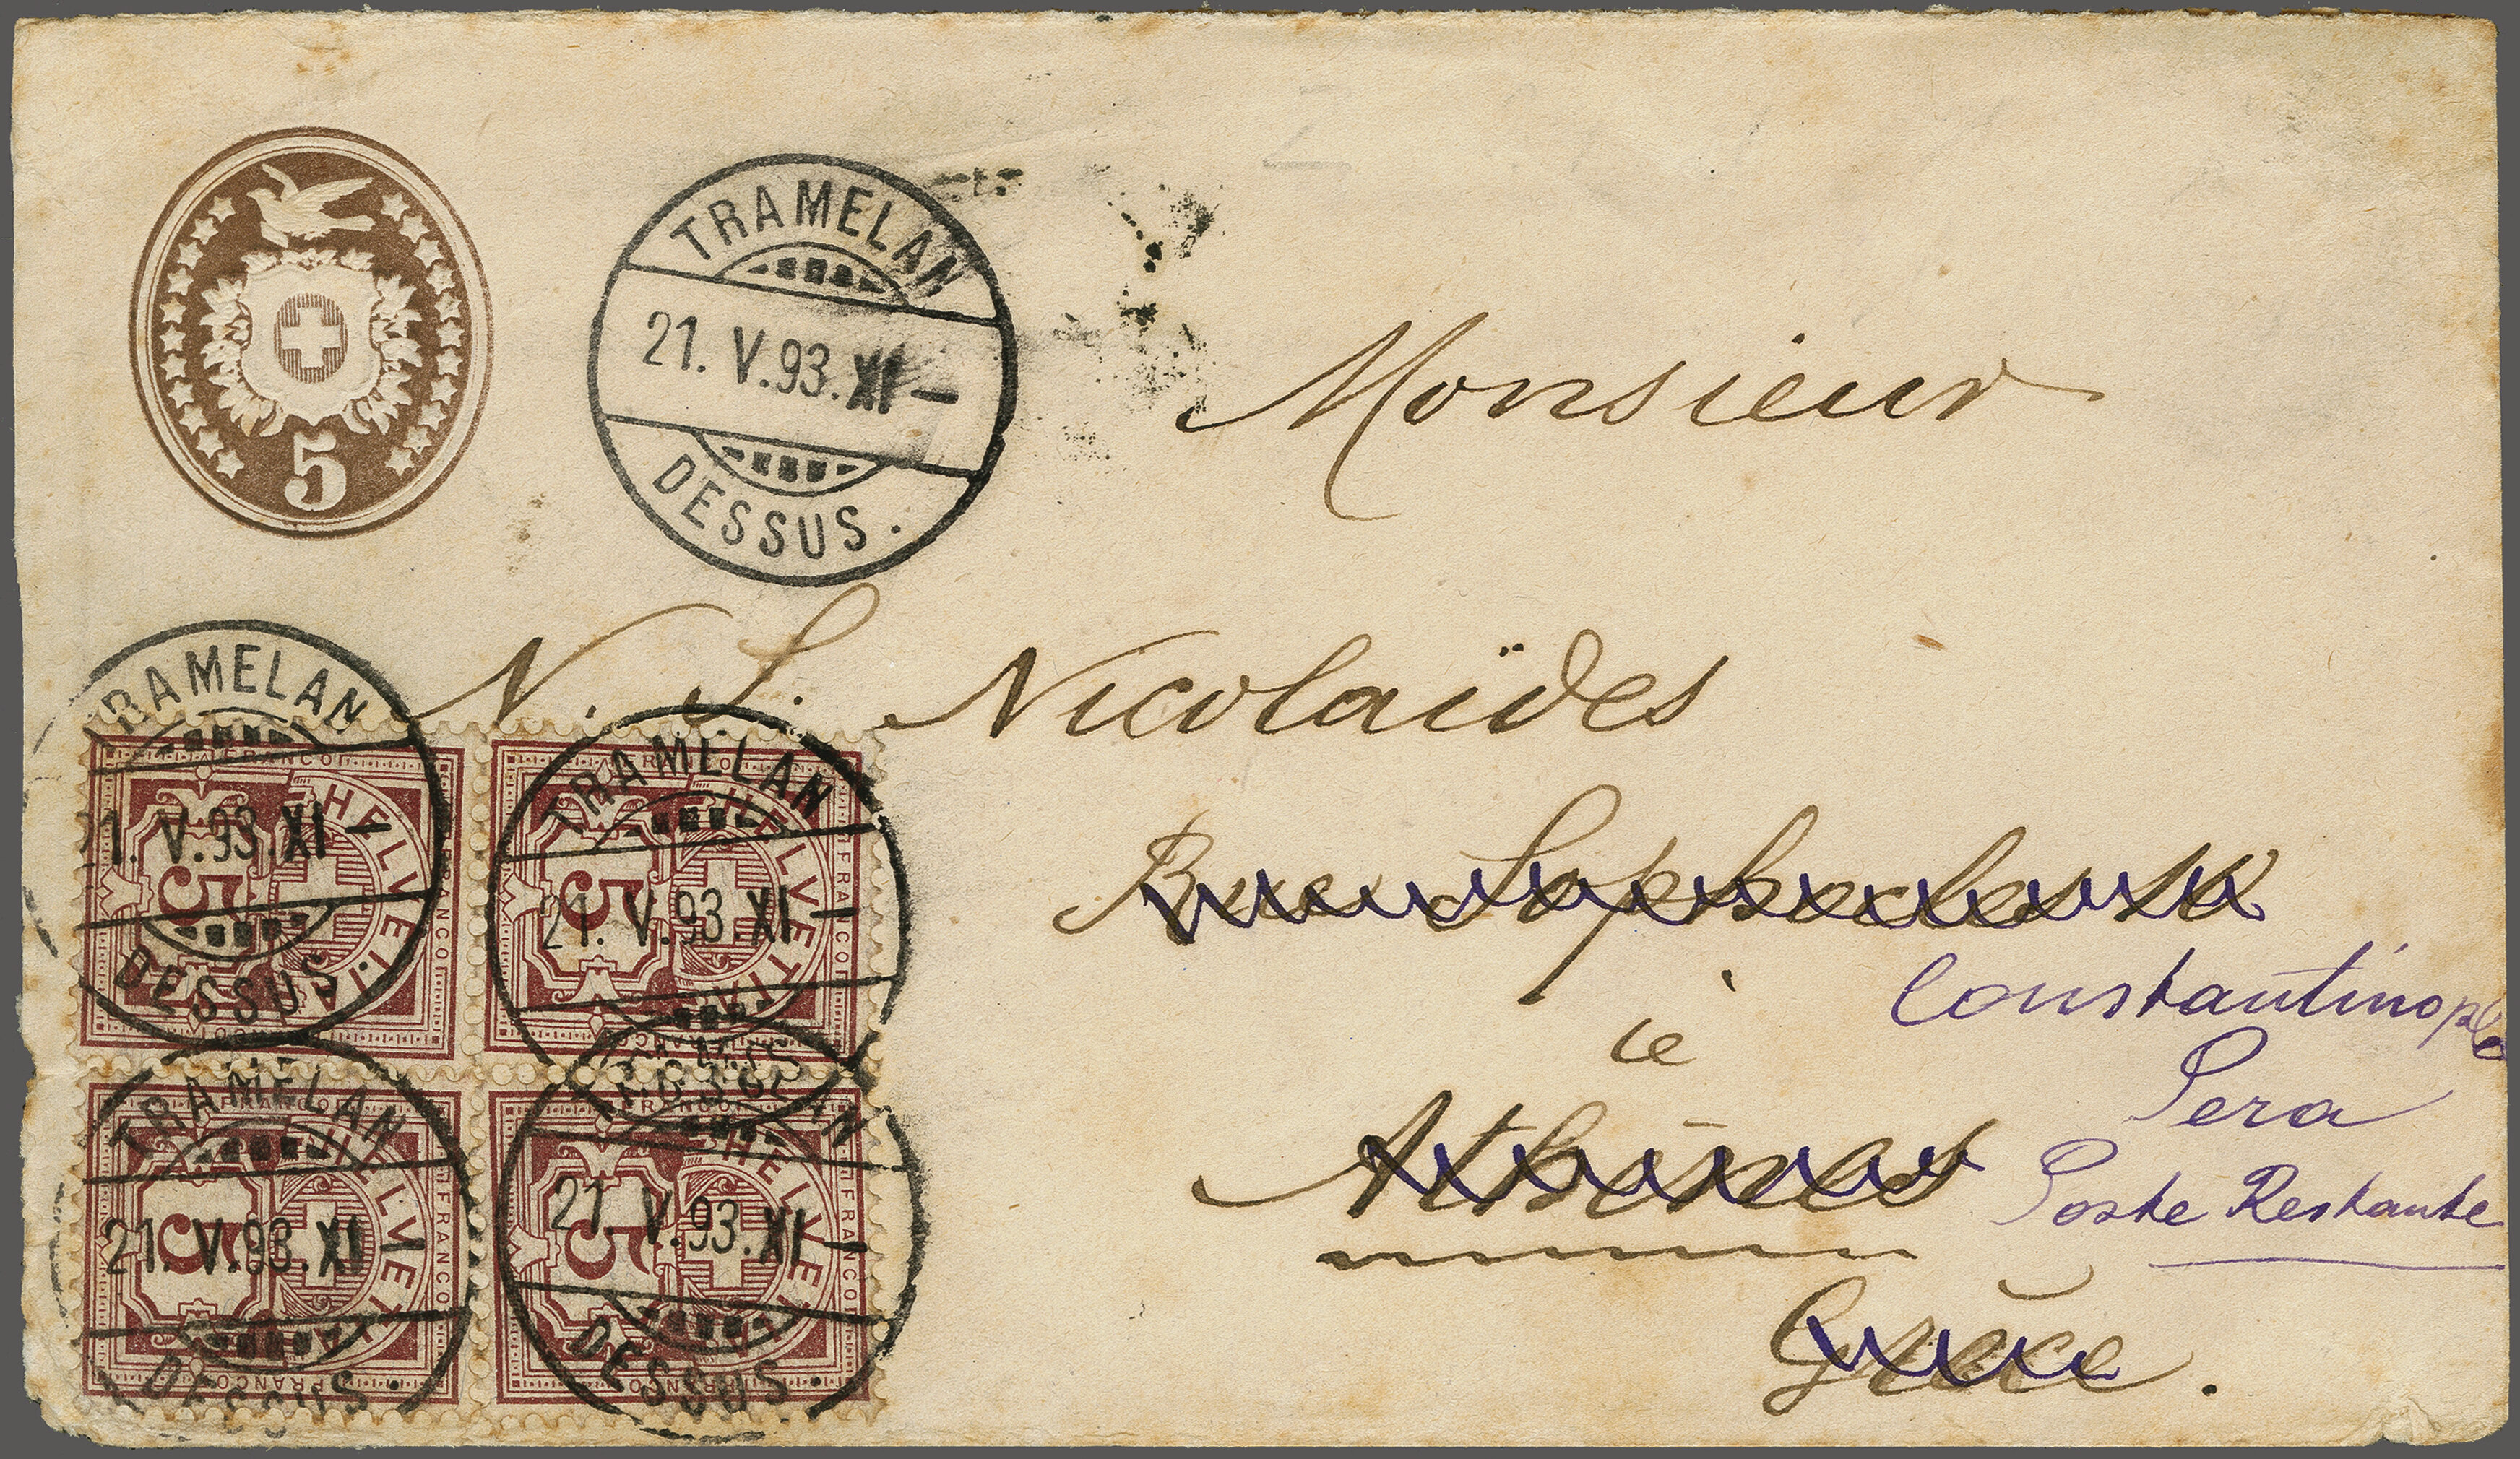 5
TRAMELAN
21. V.93.XI—
DESSUS.
Monsieur
N. S. Nicolaïdes
Rue Sophocles
à
Athènes
Grèce.
Constantinople
Pera
Poste Restante
TRAMELAN
21. V.93.XI—
DESSUS.
FRANCO
HELVETIA
5
TRAMELAN
21. V.93.XI—
FRANCO
HELVETIA
5
TRAMELAN
21. V.93.XI—
DESSUS.
FRANCO
HELVETIA
5
TRAMELAN
21. V.93.XI—
DESSUS.
FRANCO
HELVETIA
5